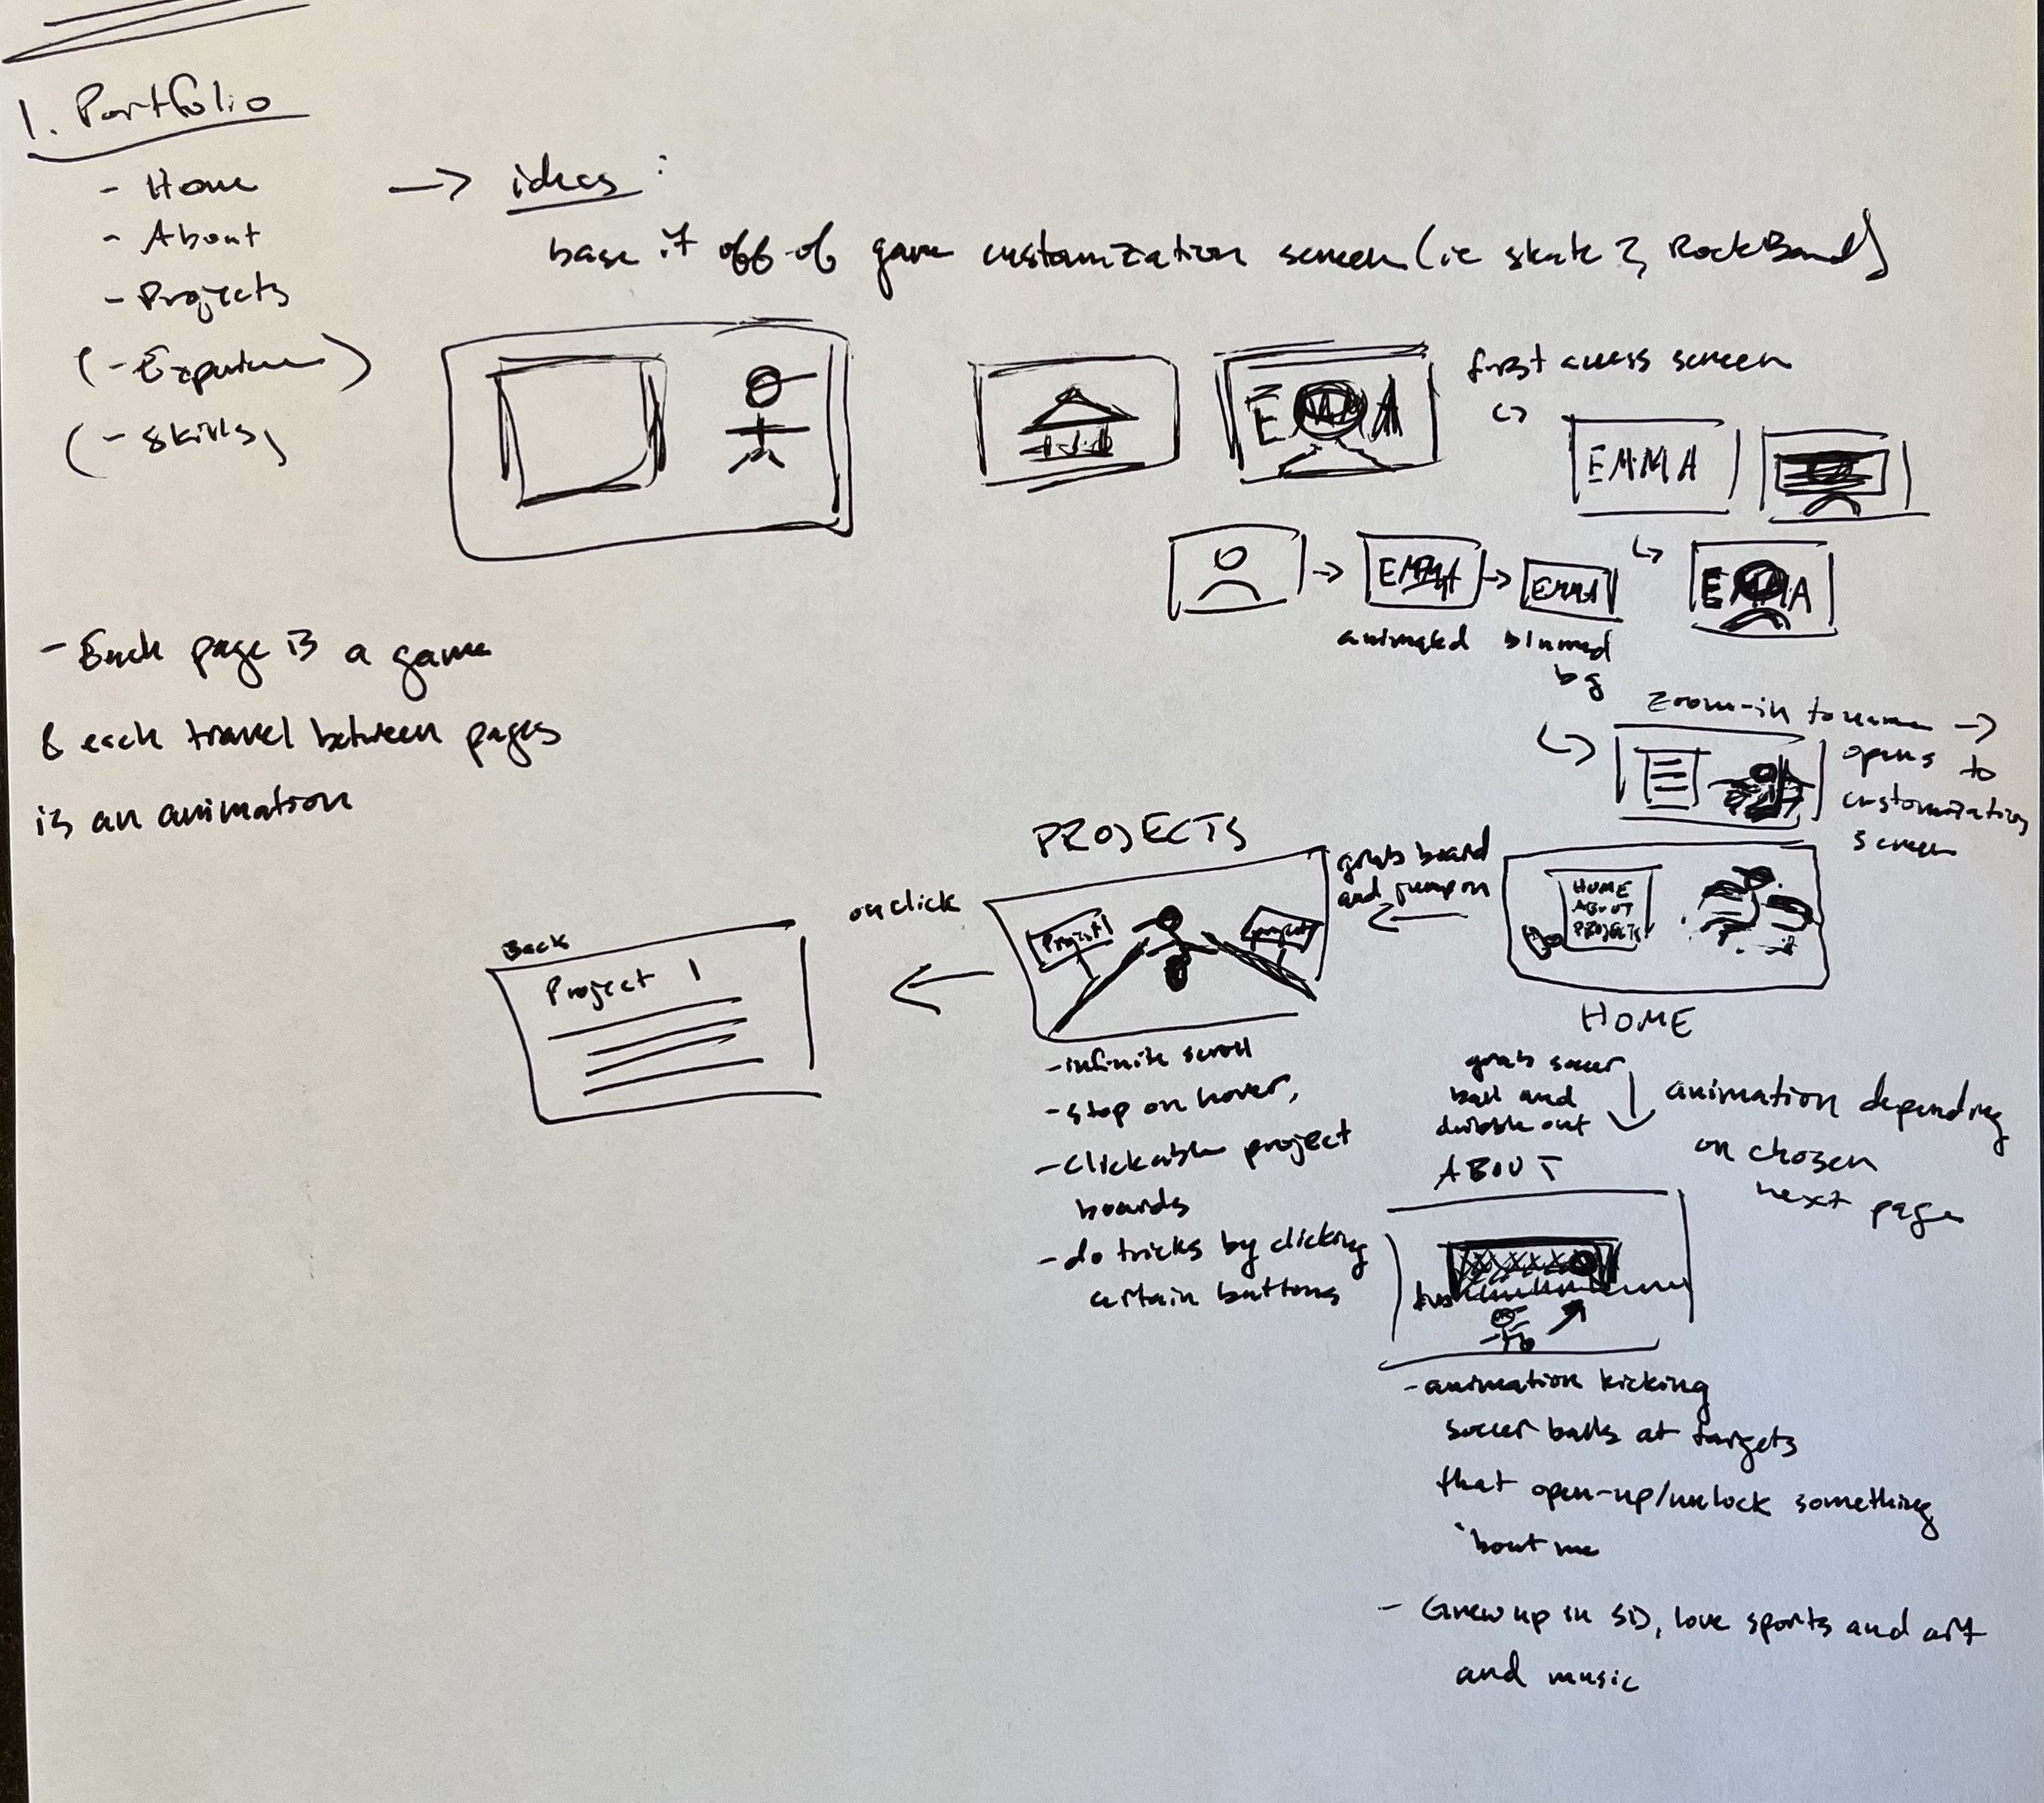 1. Portfolio
- Home
- About
- Projects
(- Experience)
(- Skills)
→ ideas :
base it off of game customization screen (ie skate 3, RockBand)
EMMA
first access screen
EMMA
EMMA
EMMA
EMMA
animated
blurred
bg
- Each page is a game
& each travel between pages
is an animation
zoom-in to name →
opens to
customization
screen
HOME
ABOUT
PROJECTS
HOME
grab board
and jump on
PROJECTS
Project 1
project
on click
Back
Project 1
- infinite scroll
- stop on hover,
- clickable project
boards
- do tricks by clicking
certain buttons
grab soccer
ball and
dribble out
animation depending
on chosen
next page
ABOUT
- animation kicking
soccer balls at targets
that open-up/unlock something
'bout me
- Grew up in SD, love sports and art
and music